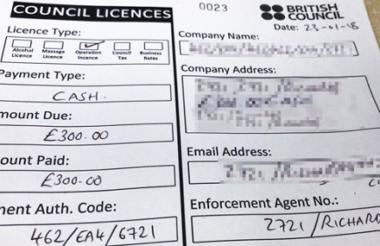 COUNCIL LICENCES
0023
BRITISH
COUNCIL
Date: 23-01-18
Licence Type:
Alcohol Licence
Massage Licence
Operation Incence
Council Tax
Business Rates
Company Name:
Payment Type:
CASH.
Company Address:
mount Due:
£300.00
ount Paid:
£300.00
Email Address:
2721 / RICHARD
ment Auth. Code:
462/EA4/6721
Enforcement Agent No.:
2721/RICHAR